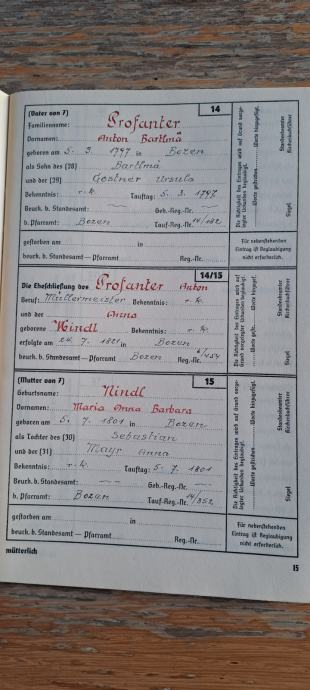 (Vater von 7) 14
Familienname: Profanter
Vornamen: Anton Bartlmä
geboren am 5. 3. 1797 in Bozen
als Sohn des (28) Bartlmä
und der (29) Gostner Ursula
Bekenntnis: r. k. Tauftag: 5. 3. 1797
Beurk. b. Standesamt: Geb.-Reg.-Nr.
b. Pfarramt: Bozen Tauf-Reg.-Nr. 14/182
gestorben am in
beurk. b. Standesamt — Pfarramt Reg.-Nr.
Die Richtigkeit des Eintrages wird auf Grund vorgelegter Urkunden beglaubigt.
Worte gestrichen Worte hinzugefügt.
Siegel
Standesbeamter
Kirchenbuchführer
Für nebenstehenden
Eintrag ist Beglaubigung
nicht erforderlich.
14/15
Die Eheschließung des Profanter Anton
Beruf: Müllermeister Bekenntnis: r. k.
und der Anna
geborene Nindl Bekenntnis: r. k.
erfolgte am 24. 7. 1821 in Bozen
beurk. b. Standesamt — Pfarramt Bozen Reg.-Nr. 6/454
Siegel
Standesbeamter
Kirchenbuchführer
(Mutter von 7) 15
Geburtsname: Nindl
Vornamen: Maria Anna Barbara
geboren am 5. 7. 1801 in Bozen
als Tochter des (30) Sebastian
und der (31) Mayr Anna
Bekenntnis: r. k. Tauftag: 5. 7. 1801
Beurk. b. Standesamt: Geb.-Reg.-Nr.
b. Pfarramt: Bozen Tauf-Reg.-Nr. 14/352
gestorben am in
beurk. b. Standesamt — Pfarramt Reg.-Nr.
Siegel
Standesbeamter
Kirchenbuchführer
Für nebenstehenden
Eintrag ist Beglaubigung
nicht erforderlich.
mütterlich
15